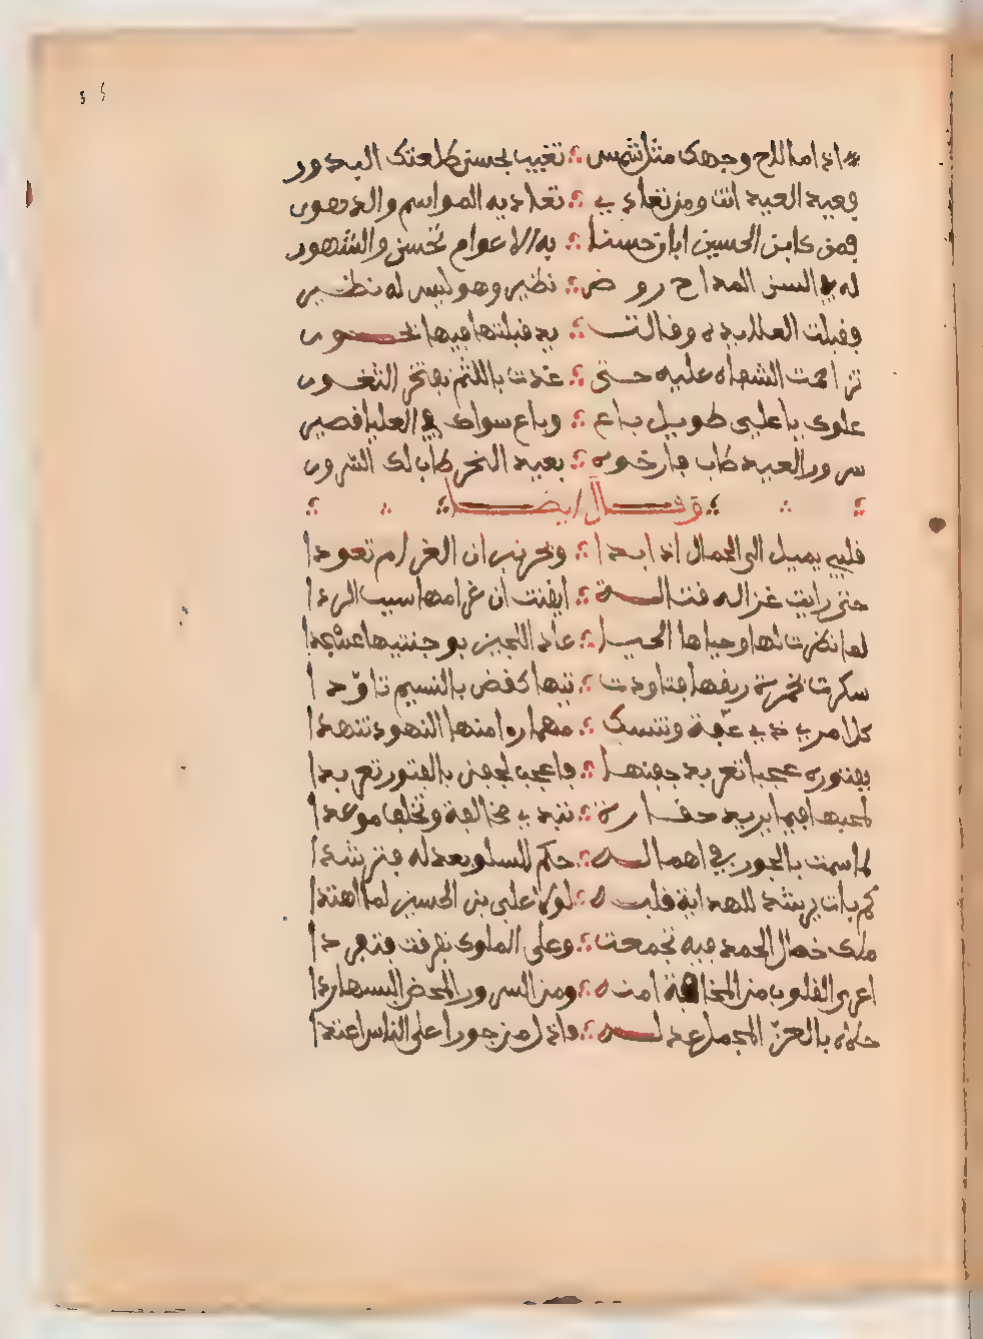 اذا ما لاح وجهك مثل شمس ؛ تغيب لحسن طلعتك البدور
فعيد العيد انت ومن تعادي ؛ تعاديه المواسم والدهور
فمن كابن الحسين ابان حسنا ؛ به الاعوام تحسن والشهور
له في السن المداح روض ؛ نظير وهو ليس له نظير
وقبلت العلا يده وقالت ؛ يد قبلتها فيها بحور
تزاحمت الشفاه عليه حتى ؛ غدت باللثم تفتخر الثغور
علوك يا علي طويل باع ؛ وباع سواك في العليا قصير
سرور العيد طاب فارخوه ؛ بعيد النحر طاب لك السرور
وقال ايضا
قلبي يميل الى الجمال اذا بدا ؛ ان الغرام تعودا
حتى رايت غزاله فتاله ؛ ايقنت ان غرامها سبب الردا
لما نظرت لها وحياها الحيا ؛ عاد اللجين بوجنتيها عسجدا
سكرت بخمرة ريقها فتاودت ؛ تيها كغض بالنسيم تاودا
كلا مر بي ذي عفة وتنسك ؛ مهما راى منها النهود تنهدا
عجبا تعربد جفنها ؛ فاعجب لجفن بالفتور تعربدا
لمحبها فيما يريد ؛ تبدي مخالفة وتخلف موعدا
لما سمت بالجور في ؛ حكم للسلو بعدله فترشدا
كم بات يرشد للهداية قلبه ؛ لولا علي بن الحسين لما اهتدا
ملك خصال الحمد فيه تجمعت ؛ وعلى الملوك تفرقت فتفردا
اعرى القلوب من المخافة امنه ؛ ومن السرور المحض البسها ردا
بالعز المجمل عدله ؛ على الناس اعتدا